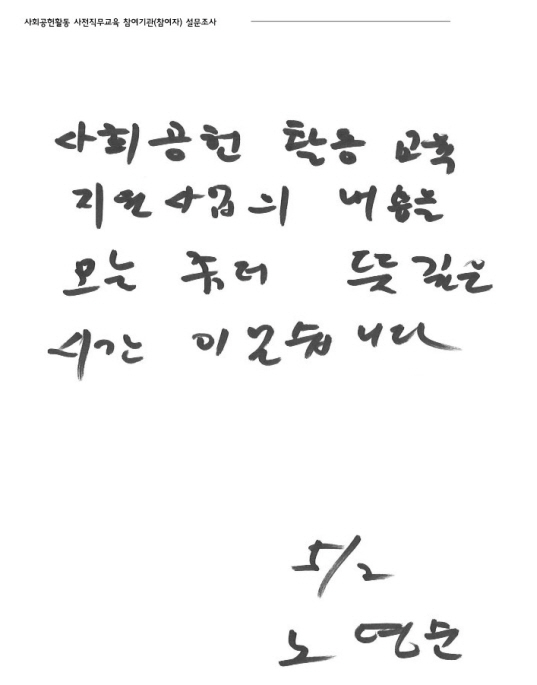 사회공헌활동 사전직무교육 참여기관(참여자) 설문조사
사회공헌 활동 교육
지원사업의 내용을
모는 뜻깊은
시간 이 습니다
5/2
노 연